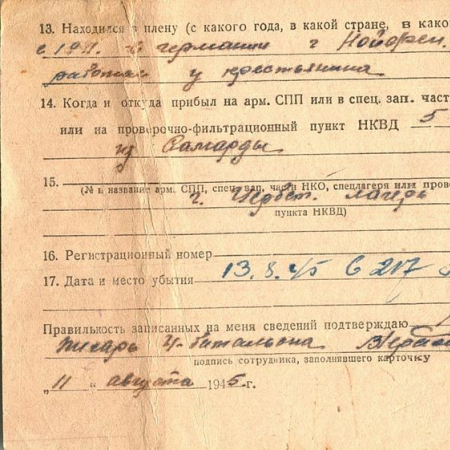 13. Находился в плену (с какого года, в какой стране, в како
с 1941 в германии г Нойорен.
работал у крестьянина
14. Когда и откуда прибыл на арм. СПП или в спец. зап. част
или на проверочно-фильтрационный пункт НКВД 5
из Самарды
15.
(№ и название арм. СПП, спец. зап. части НКО, спецлагеря или прове
г. Цербст. лагерь
пункта НКВД)
16. Регистрационный номер
17. Дата и место убытия 13.8.45 С 217
Правильность записанных на меня сведений подтверждаю
писарь батальона
подпись сотрудника, заполнявшего карточку
"11" августа 1945 г.